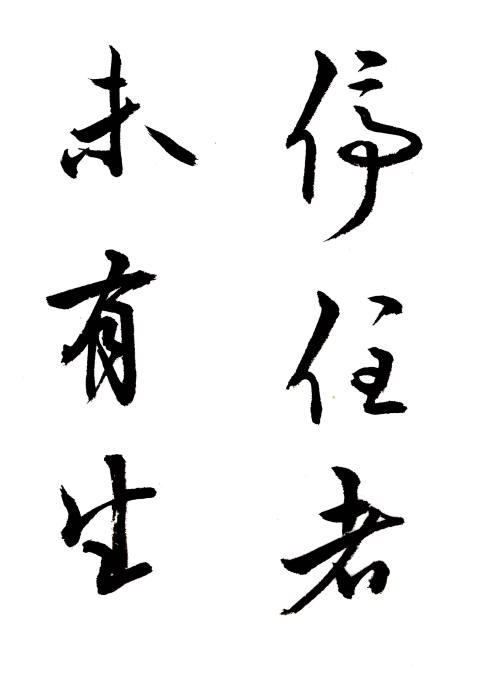 停住者
未有生